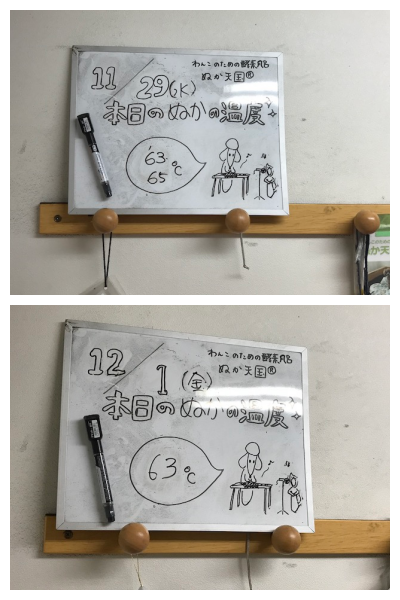 わんこのための酵素風呂
ぬか天国®
11/29(水)
本日のぬかの温度
63
65 ℃
か天
わんこのための酵素風呂
ぬか天国®
12/1(金)
本日のぬかの温度
63℃